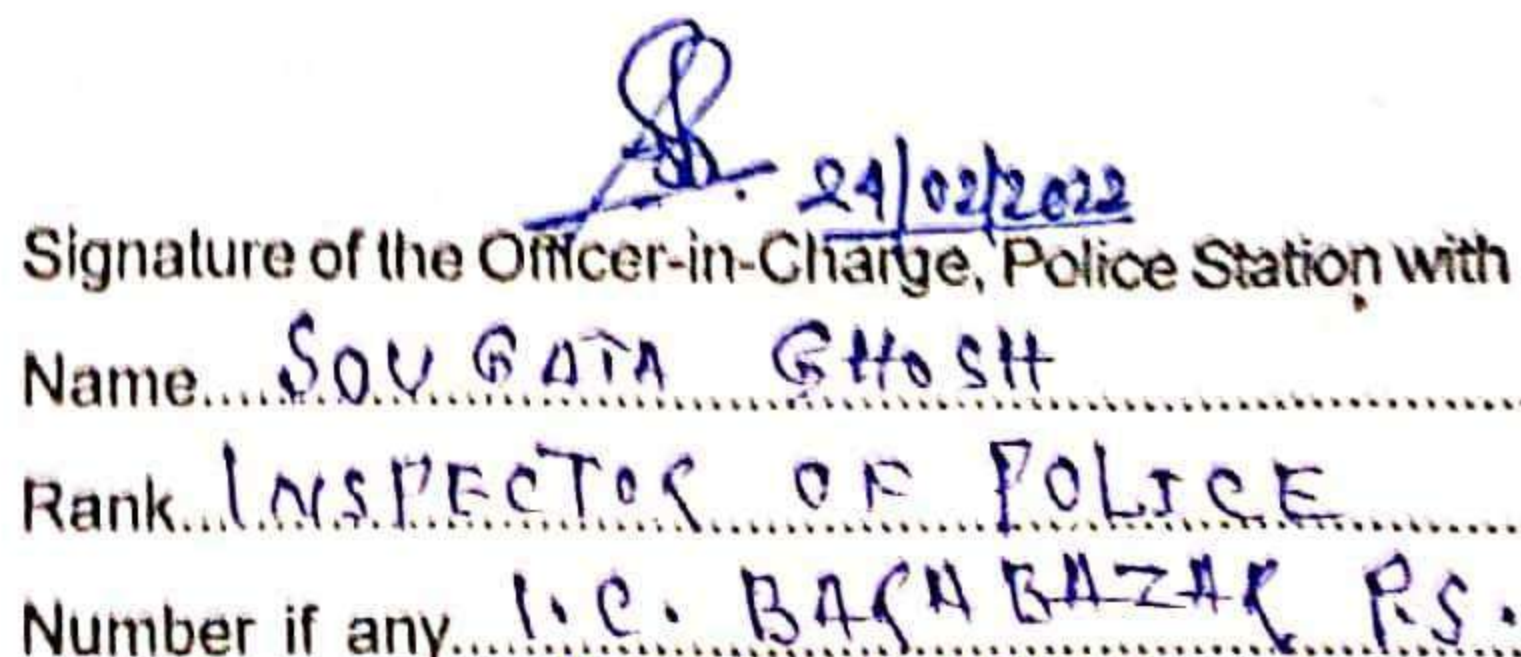 24/02/2022
Signature of the Officer-in-Charge, Police Station with
Name....SOUGATA GHOSH
Rank...INSPECTOR OF POLICE
Number if any....I.C. BARABAZAR P.S.